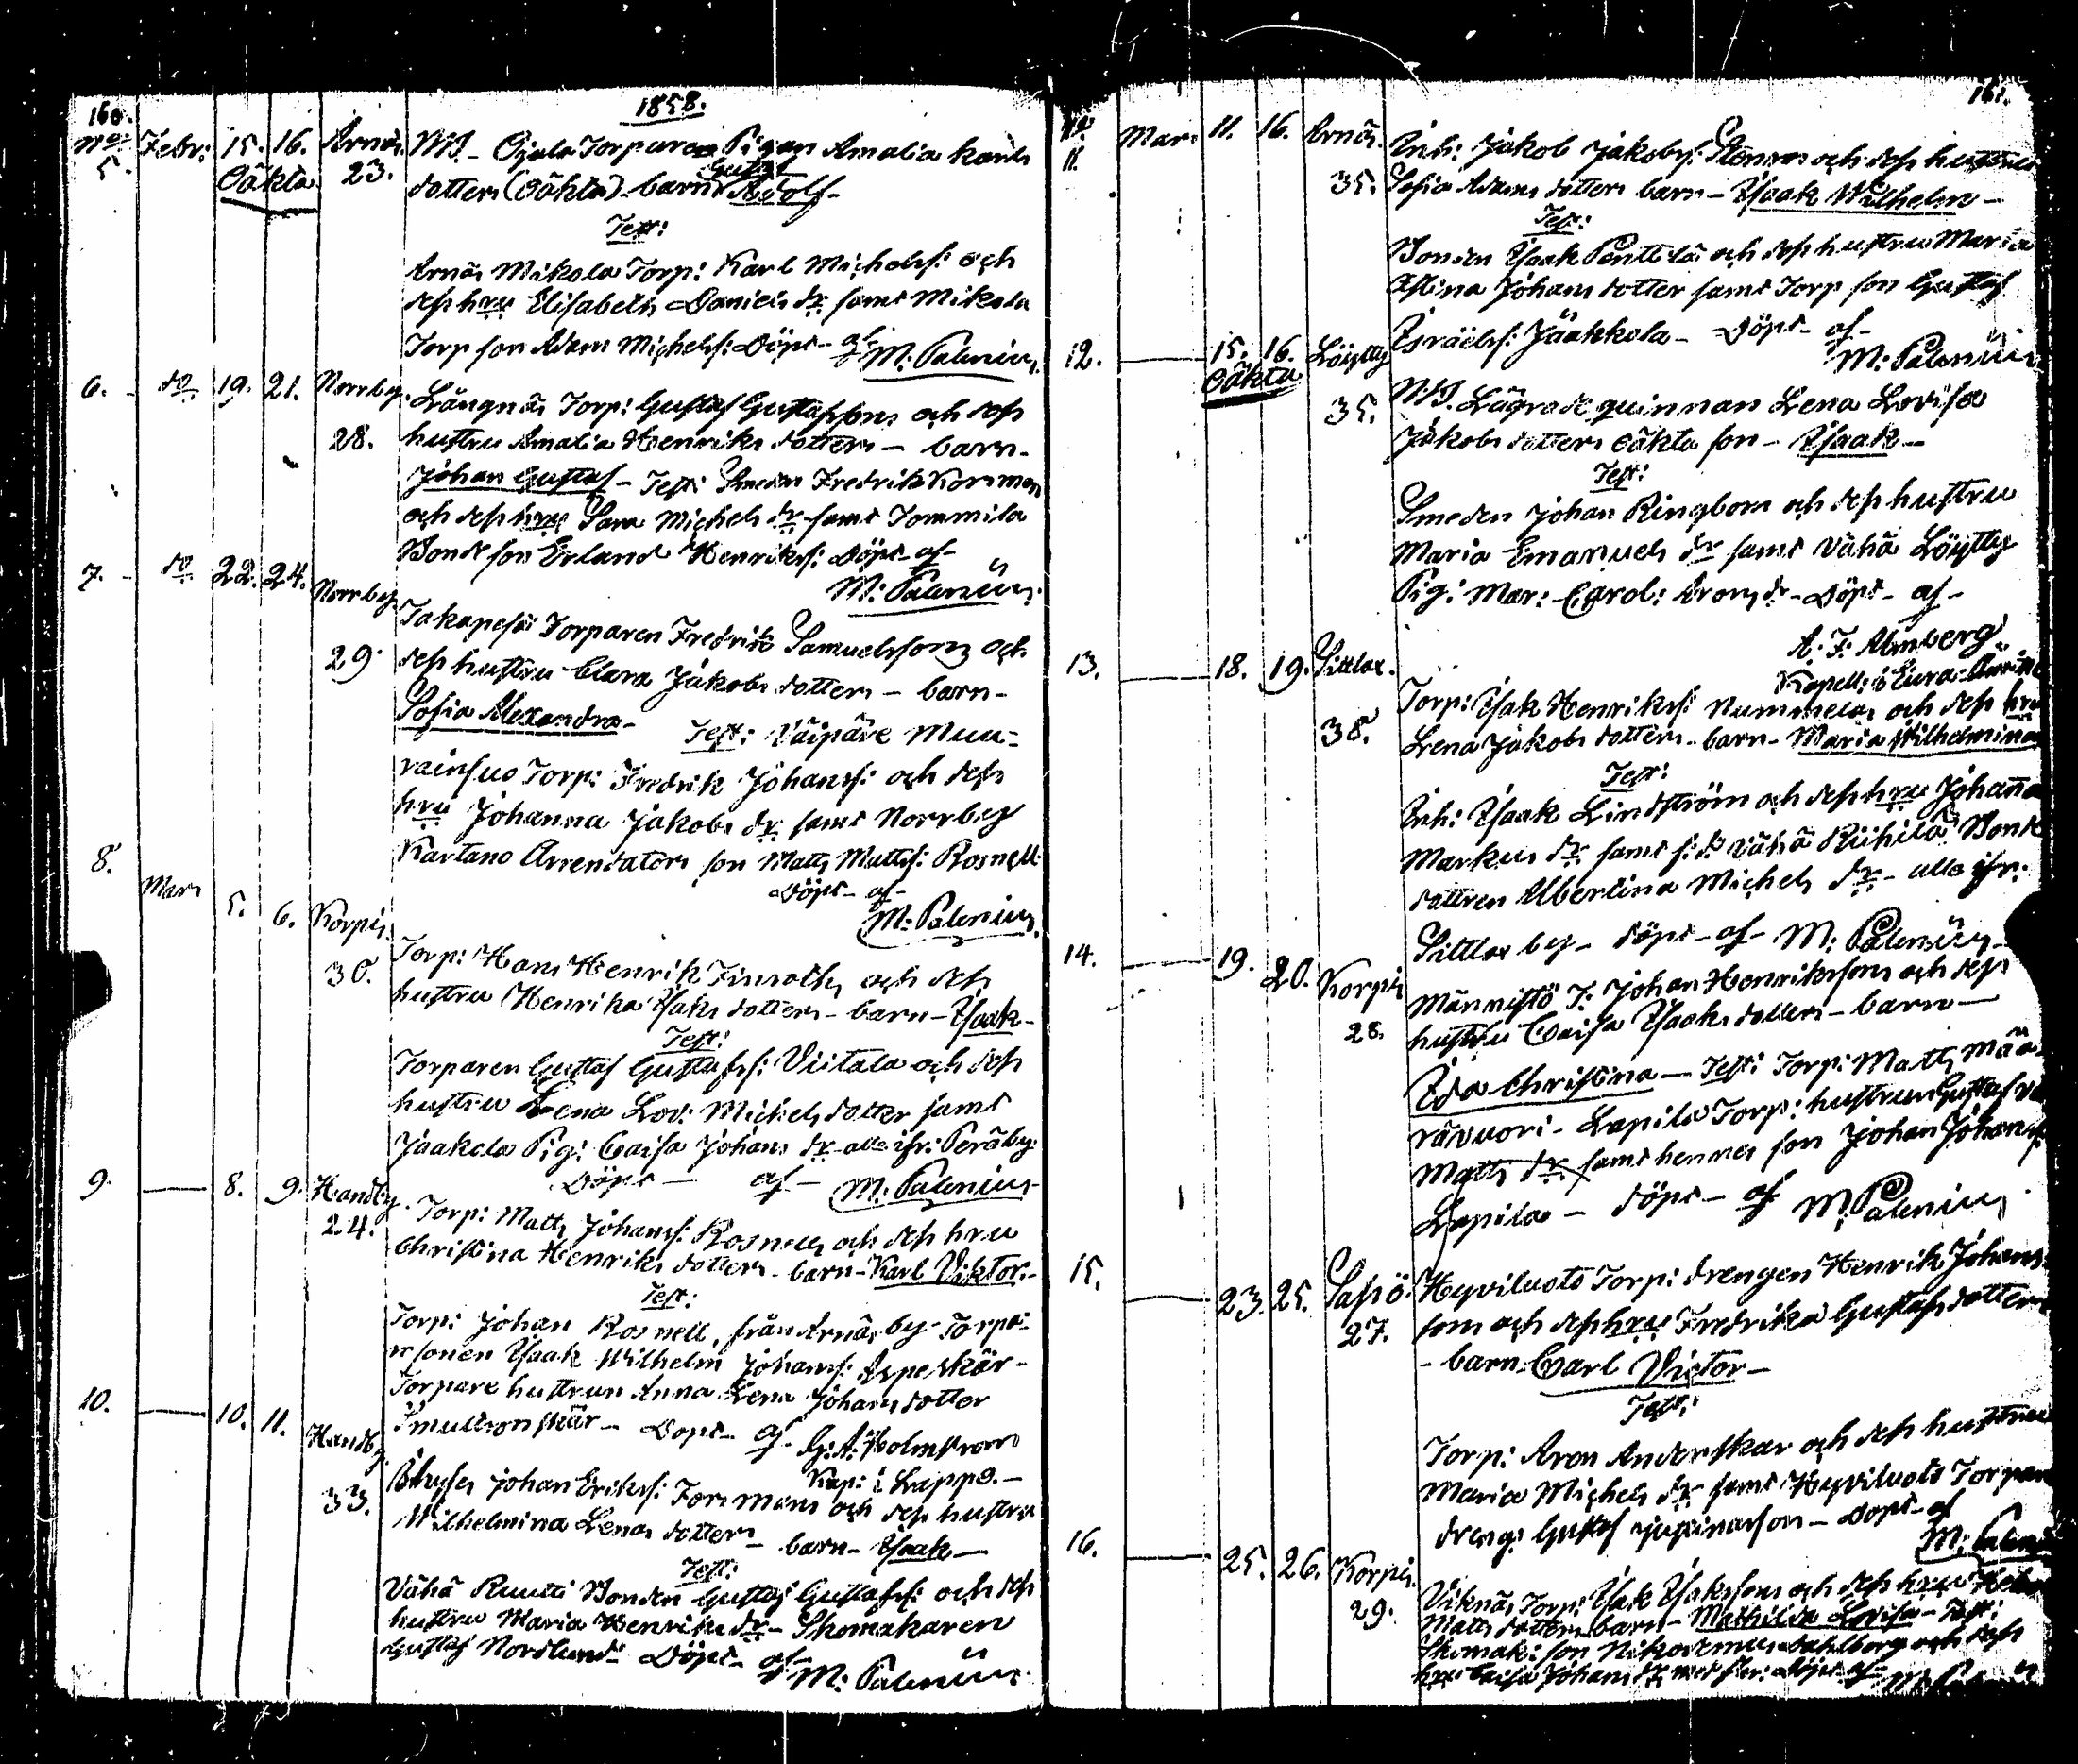 160.
1858.
No 5. Febr: 15. 16. Arnäs. NB. Ojala Torparen Pigan Amalia Karls
Oäkta 23. dotters (Oäkta) barn Gustaf Adolf -
Test:
Arnäs Mikola Torp: Karl Michelss: och
dess hru Elisabeth Daniels dr samt Mikola
Torp son Adam Michelss: Döpt af M: Palenius.
6. - do 19. 21. Norrby. Långnäs Torp: Gustaf Gustafssons och dess
28. hustru Amalia Henriks dotters - barn -
Johan Gustaf - Test: Smeden Fredrik Kornman
och dess hru Sara Michels dr samt Tommila
Bonde son Erland Henrikss: Döpt af -
M: Palenius.
7. - do 22. 24. Norrby. Takapesä Torparen Fredrik Samuelssons och
29. dess hustru Clara Jakobs dotters - barn -
Sofia Alexandra - Test: Väipäre Muu-
rainsuo Torp: Fredrik Johanss: och dess
hru Johanna Jakobs dr samt Norrby
Kartano Arrendators son Matts Mattss: Rosnell
Döpt - af -
M: Palenius.
8. Mars 5. 6. Korpis. Torp: Hans Henrik Finroths och dess
30. hustru Henrika Isaks dotters - barn - Isaak -
Test:
Torparen Gustaf Gustafss: Viitala och dess
hustru Lena Lov: Michels dotter samt
Jaakola Pig: Caisa Johans dr alla ifr: Peräby.
Döpt - af - M: Palenius
9. 8. 9. Handby. Torp: Matts Johanss: Rosnells och dess hru
24. Christina Henriks dotters - barn - Karl Viktor. -
Test:
Torp: Johan Rosnell, från Arnäs by - Torpa-
re sonen Isaak Wilhelm Johanss: Aspeskär -
Torpare hustrun Anna Lena Johans dotter
Smultronskär - Döpt - af - G: A: Holmstrom
Kap: i Lappo. -
10. 10. 11. Handby. Inhyses Johan Erikss: Forsmans och dess hustru
33. Wilhelmina Lenas dotters - barn - Isaak -
Test:
Vähä Ruuti Bonden Gustaf Gustafss: och dess
hustru Maria Henriks dr - Skomakaren
Gustaf Nordlund Döpt - af -
M: Palenius
161.
11. Mars 11. 16. Arnäs. Inh: Jakob Jakobss: Stenroos och dess hustrus
35. Sofia Adams dotters barn - Isaak Wilhelm -
Test:
Bonden Isaak Penttilä och dess hustru Maria
Stina Johans dotter samt Torp son Gustaf
Israëlss: Jäakkola - Döpt - af -
M: Palenius
12. 15. 16. Löytty NB. Lägrade quinnan Lena Lovisa
Oäkta 35. Jakobs dotters oäkta son - Isaak -
Test:
Smeden Johan Ringbom och dess hustru
Maria Emanuels dr samt Vähä Löytty
Pig: Mar: Carol: Arons dr - Döpt - af -
A. F. Almberg.
Kapell: i Eura
13. 18. 19. Sittlax. Torp: Isak Henrikss: Nummelas och dess hru
38. Lena Jakobs dotters - barn - Maria Wilhelmina
Test:
Inh: Isaak Lindström och dess hru Johanna
Markus dr samt Vähä Riihilä Bonde
dottren Albertina Michels dr - alla ifr:
Sittlax by - döpt - af - M: Palenius
14. 19. 20. Korpis Männistö T: Johan Henrikssons och dess
28. hustru Caisa Isaaks dotters - barn -
Ida Christina - Test: Torp: Matts Mää-
rävuori - Lapila Torp: hustrun Gustafva
Matts dr samt hennes son Johan Johanss
Lapila - döpt - af M. Palenius
15. 23. 25. Sassö. Hyviluoto Torp: drengen Henrik Johans-
27. sons och dess hru Fredrika Gustafs dotters
- barn - Carl Victor -
Test:
Torp: Aron Anderskär och dess hustru
Maria Michels dr samt Hyviluoto Torpare
dreng: Gustaf - Döpt - af
M: Paleni
16. 25. 26. Korpis. Viknäs Torp: Isak Isakssons och dess hru
29. Matts dotters barn - Mathilda Lovisa - Test:
Skomak: son Nikodemus Dahlberg och dess
hru Caisa Johans dr med fler: Döpt af